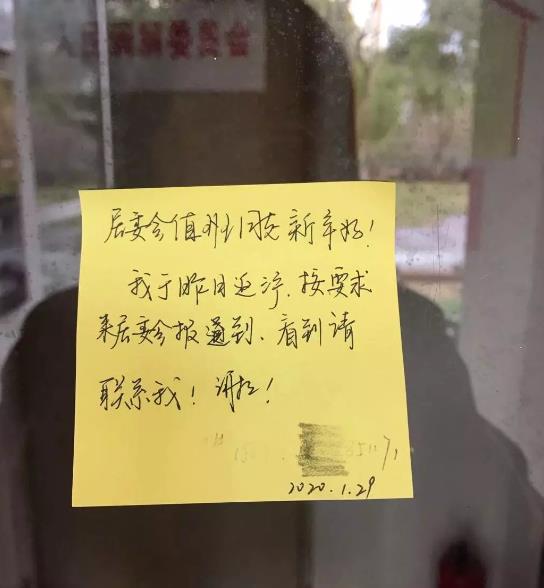 人民调解委员会
居委会值班同志新年好!
我于昨日返沪.按要求
来居委会报道到、看到请
联系我!谢谢!
2020.1.29